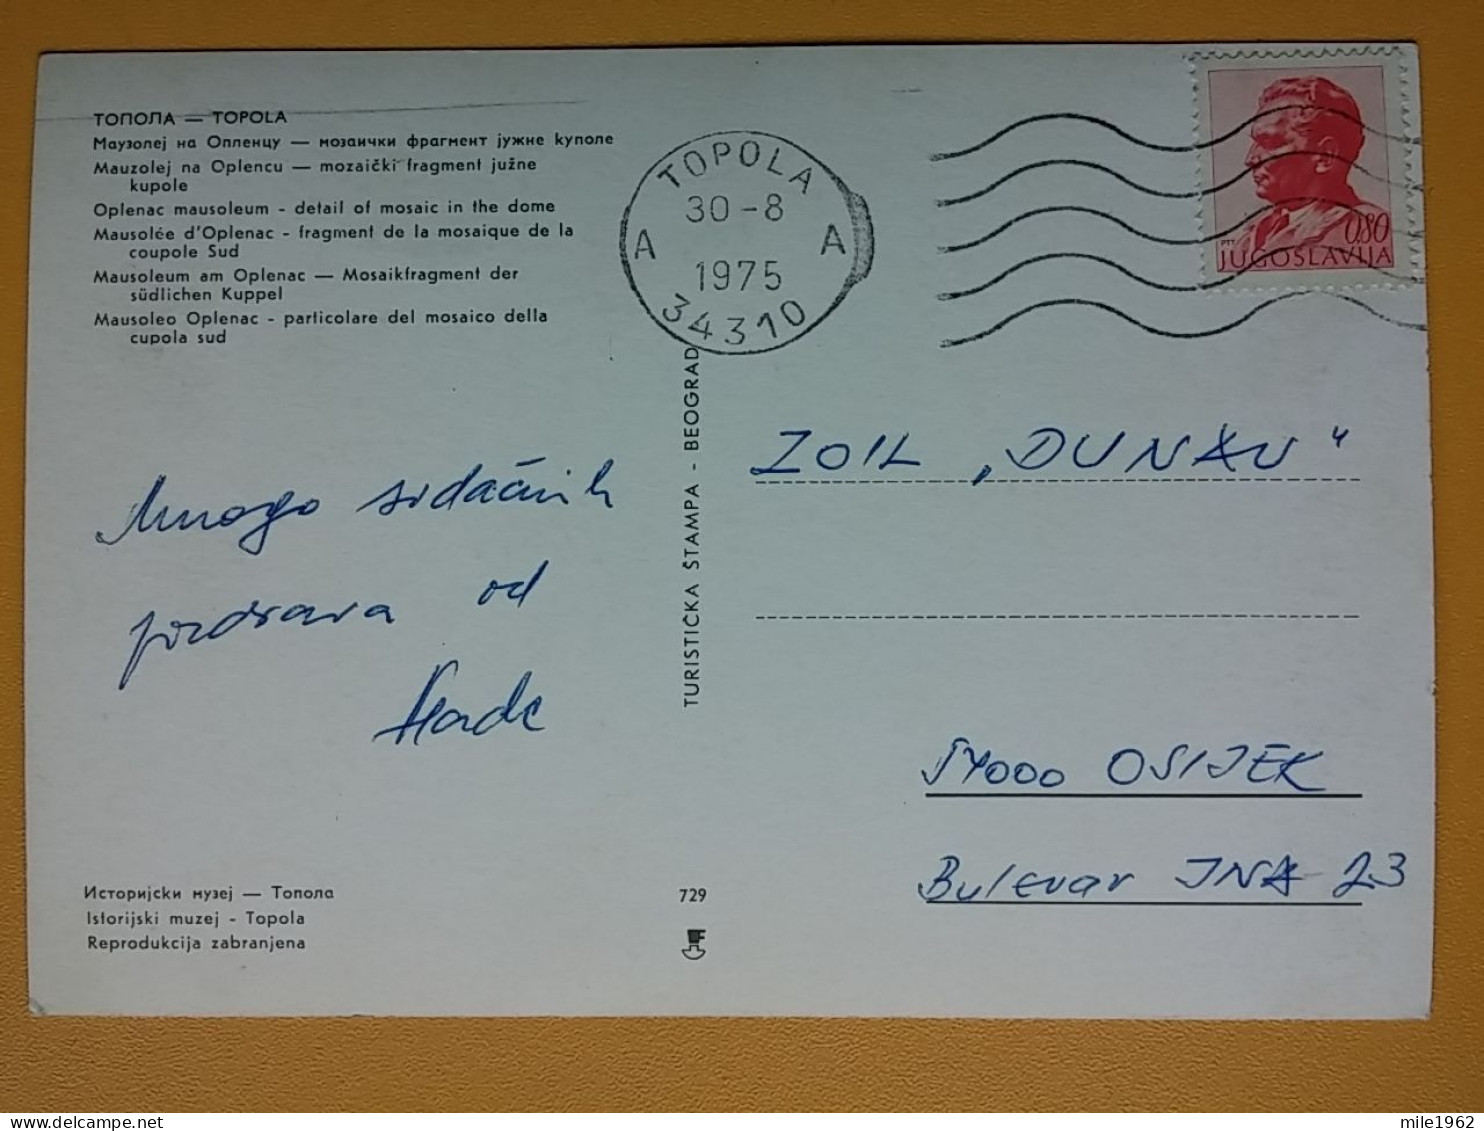 ТОПОЛА — TOPOLA
Маузолеј на Опленцу — мозаички фрагмент јужне куполе
Mauzolej na Oplencu — mozaički fragment južne
kupole
Oplenac mausoleum - detail of mosaic in the dome
Mausolée d'Oplenac - fragment de la mosaique de la
coupole Sud
Mausoleum am Oplenac — Mosaikfragment der
südlichen Kuppel
Mausoleo Oplenac - particolare del mosaico della
cupola sud
TOPOLA
30-8
A A
1975
34310
0,80
PTT
JUGOSLAVIJA
Mnogo srdačnih
pozdrava od
TURISTIČKA ŠTAMPA - BEOGRAD
ZOIL „DUNAV"
54000 OSIJEK
Bulevar JNA 23
Историјски музеј — Топола
Istorijski muzej - Topola
Reprodukcija zabranjena
729
mile1962